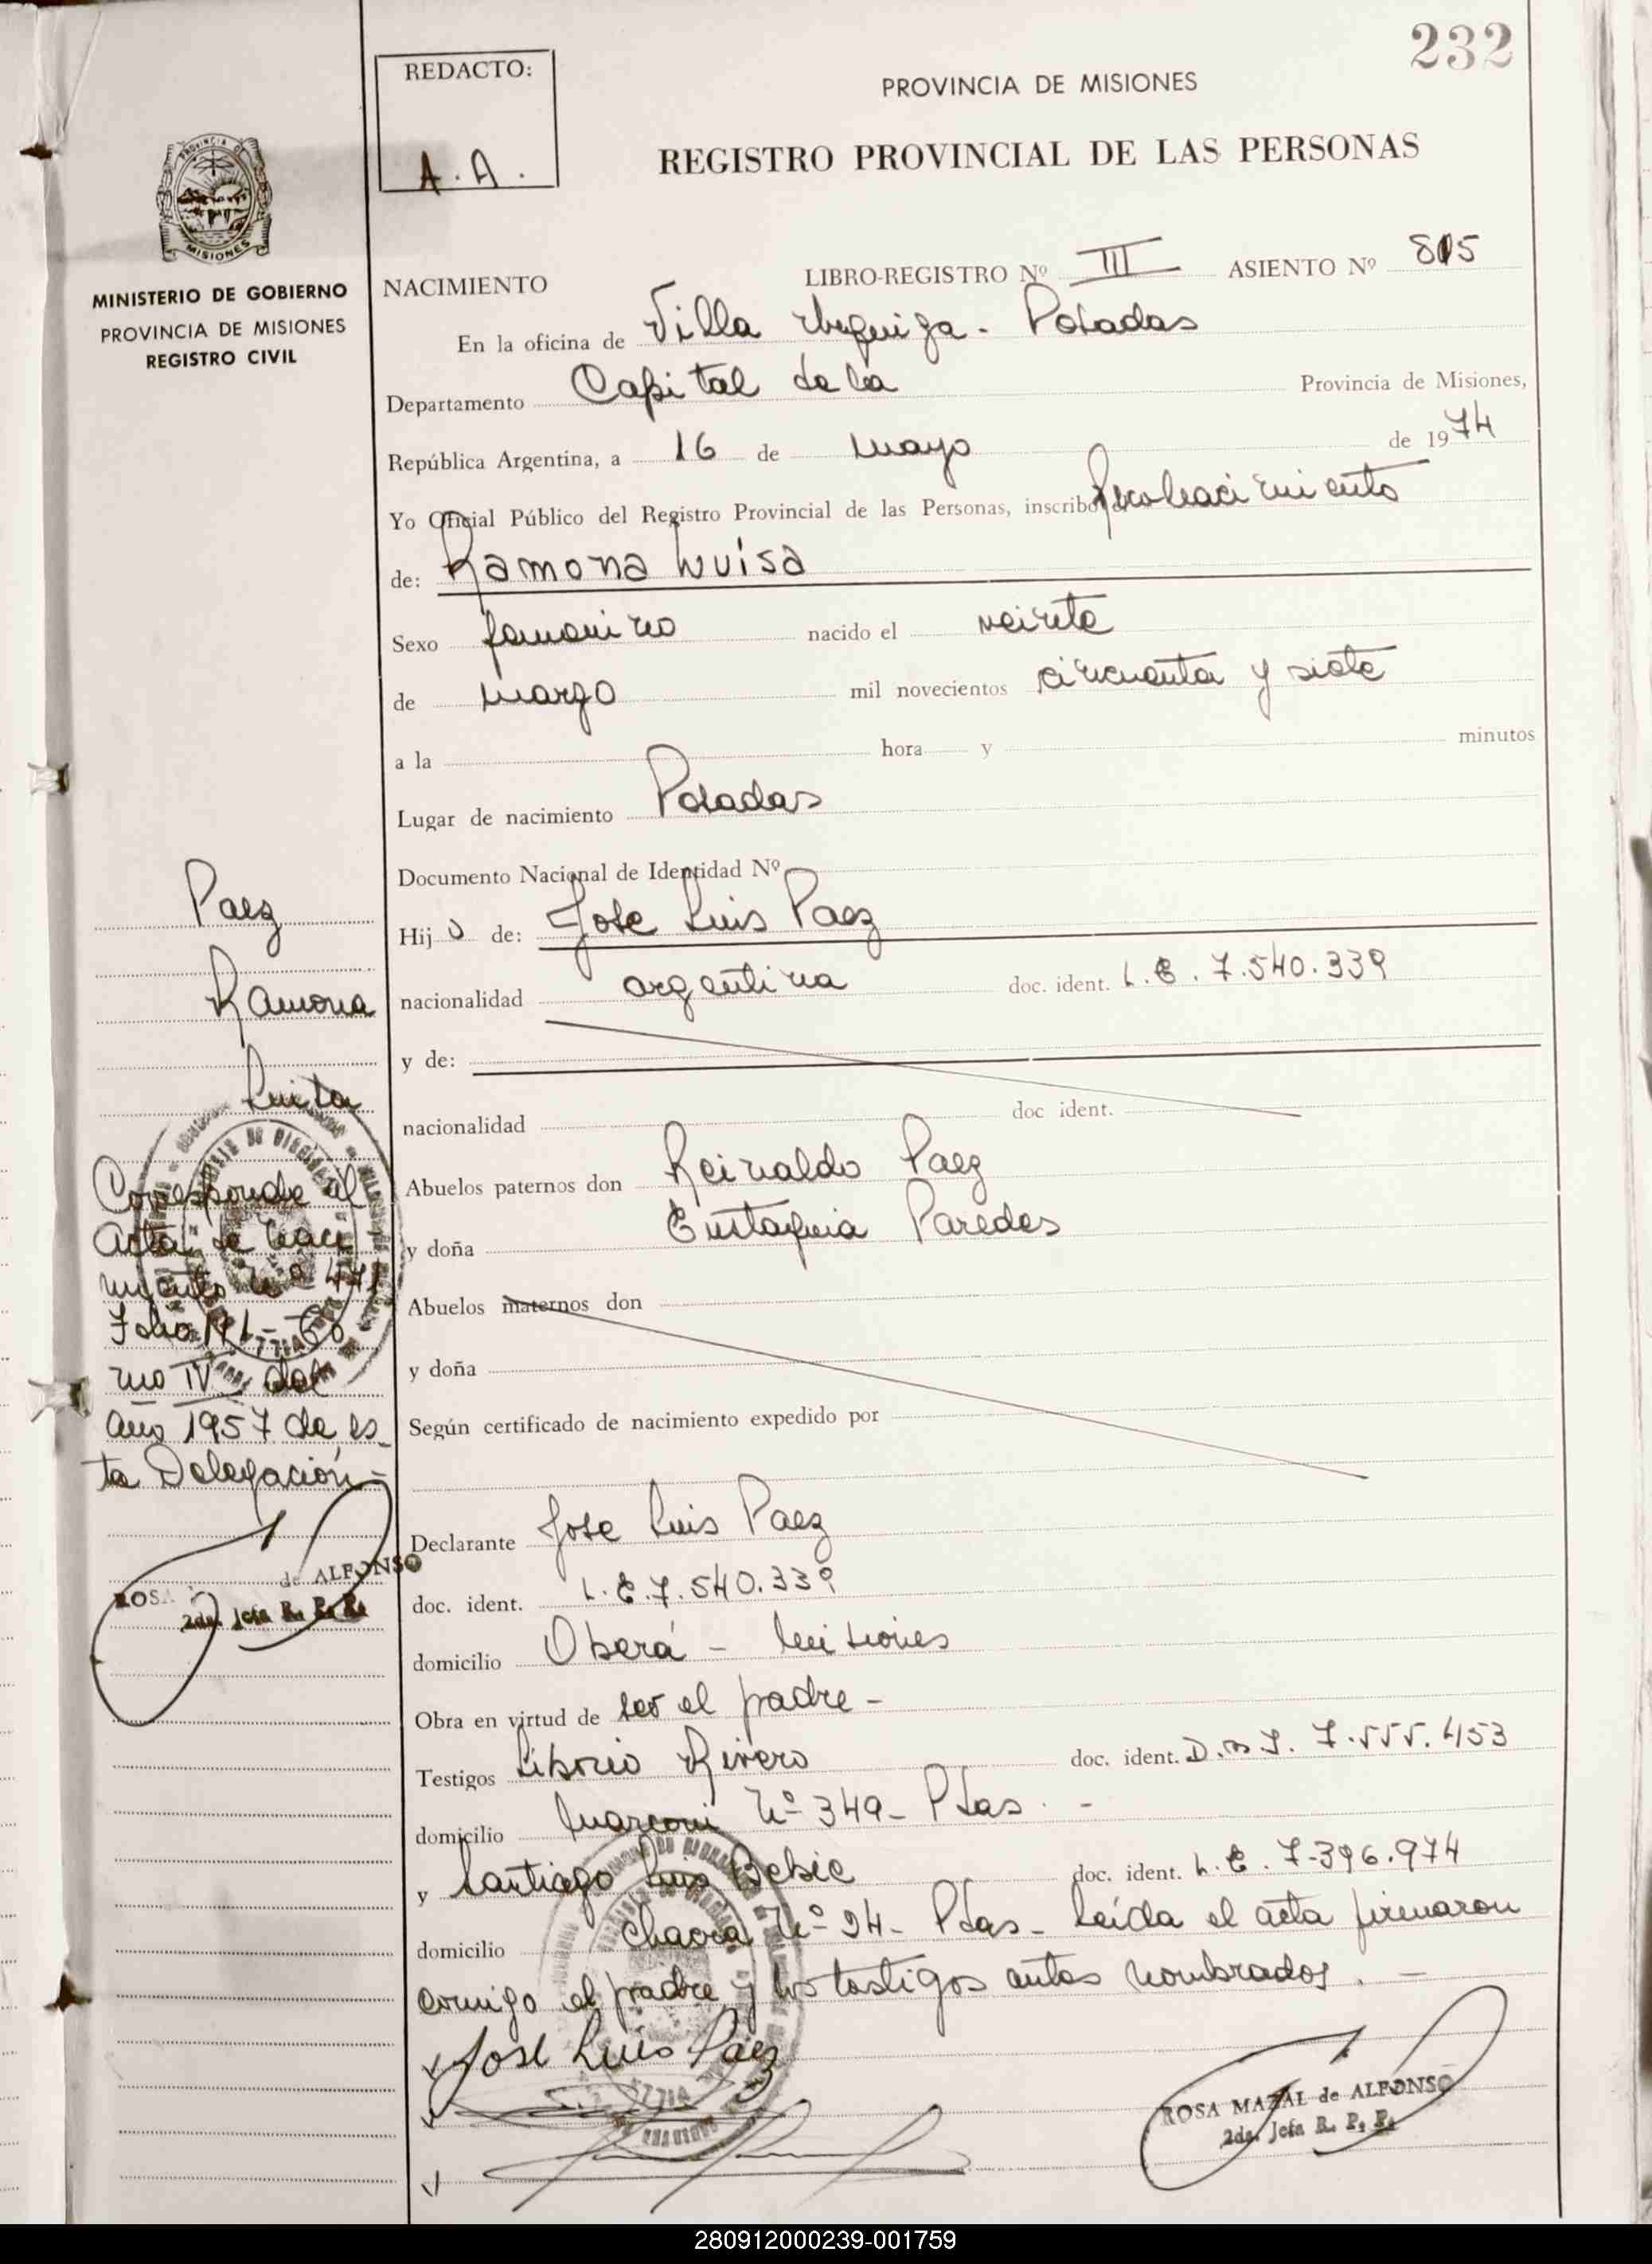 232
REDACTO:
A. A.
PROVINCIA DE MISIONES
REGISTRO PROVINCIAL DE LAS PERSONAS
MINISTERIO DE GOBIERNO
PROVINCIA DE MISIONES
REGISTRO CIVIL
NACIMIENTO LIBRO-REGISTRO Nº III ASIENTO Nº 815
En la oficina de Villa Urquiza - Posadas
Departamento Capital de la Provincia de Misiones,
República Argentina, a 16 de mayo de 1974
Yo Oficial Público del Registro Provincial de las Personas, inscribo
de: Ramona Luisa
Sexo femenino nacido el veinte
de marzo mil novecientos cincuenta y siete
a la hora y minutos
Lugar de nacimiento Posadas
Documento Nacional de Identidad Nº
Hij de: Jose Luis Paez
nacionalidad argentina doc. ident. L.E. 7.540.339
y de:
nacionalidad doc ident.
Abuelos paternos don Reinaldo Paez
y doña Eustaquia Paredes
Abuelos maternos don
y doña
Según certificado de nacimiento expedido por
Declarante Jose Luis Paez
doc. ident. L.E. 7.540.339
domicilio Oberá - Misiones
Obra en virtud de ser el padre -
Testigos Liborio Rivero doc. ident. D.N.I. 7.555.453
domicilio Marconi Nº 349 - Pdas. -
y Santiago Luis doc. ident. L.E. 7.396.974
domicilio Chacra Nº 94 - Pdas - Leída el acta firmaron
conmigo el padre y los testigos antes nombrados. -
Jose Luis Paez
ROSA MAZAL de ALFONSO
2da. Jefa R. P. P.
Paez
Ramona
Luisa
Corresponde al
Acta de naci
miento Nº 471
Folio 191 - To
mo IV del
año 1957 de es
ta Delegación -
ROSA de ALFONSO
2da. Jefa R. P. P.
280912000239-001759